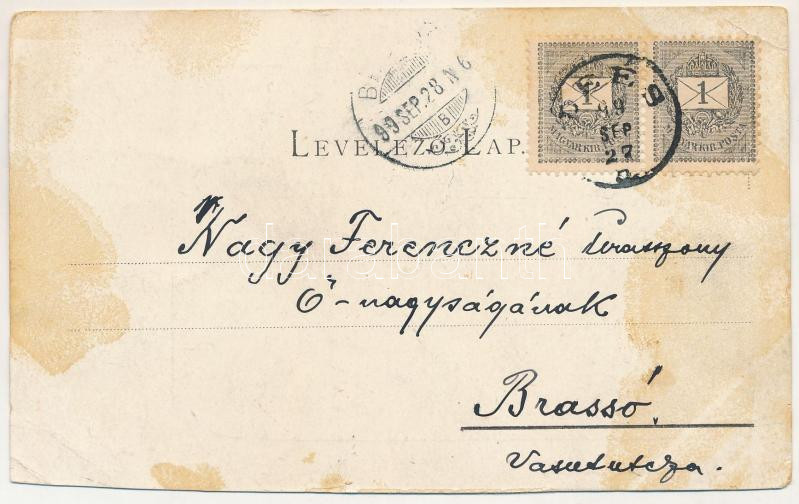 99 SEP. 28 N 6
B
1
1
MAGYAR KIR. POSTA
MAGYAR KIR. POSTA
DÉES
99
SEP
27
LEVELEZŐ LAP.
Nagy Ferenczné úrasszony
Ő-nagyságának
Brassó.
Vasututcza.
darabanth